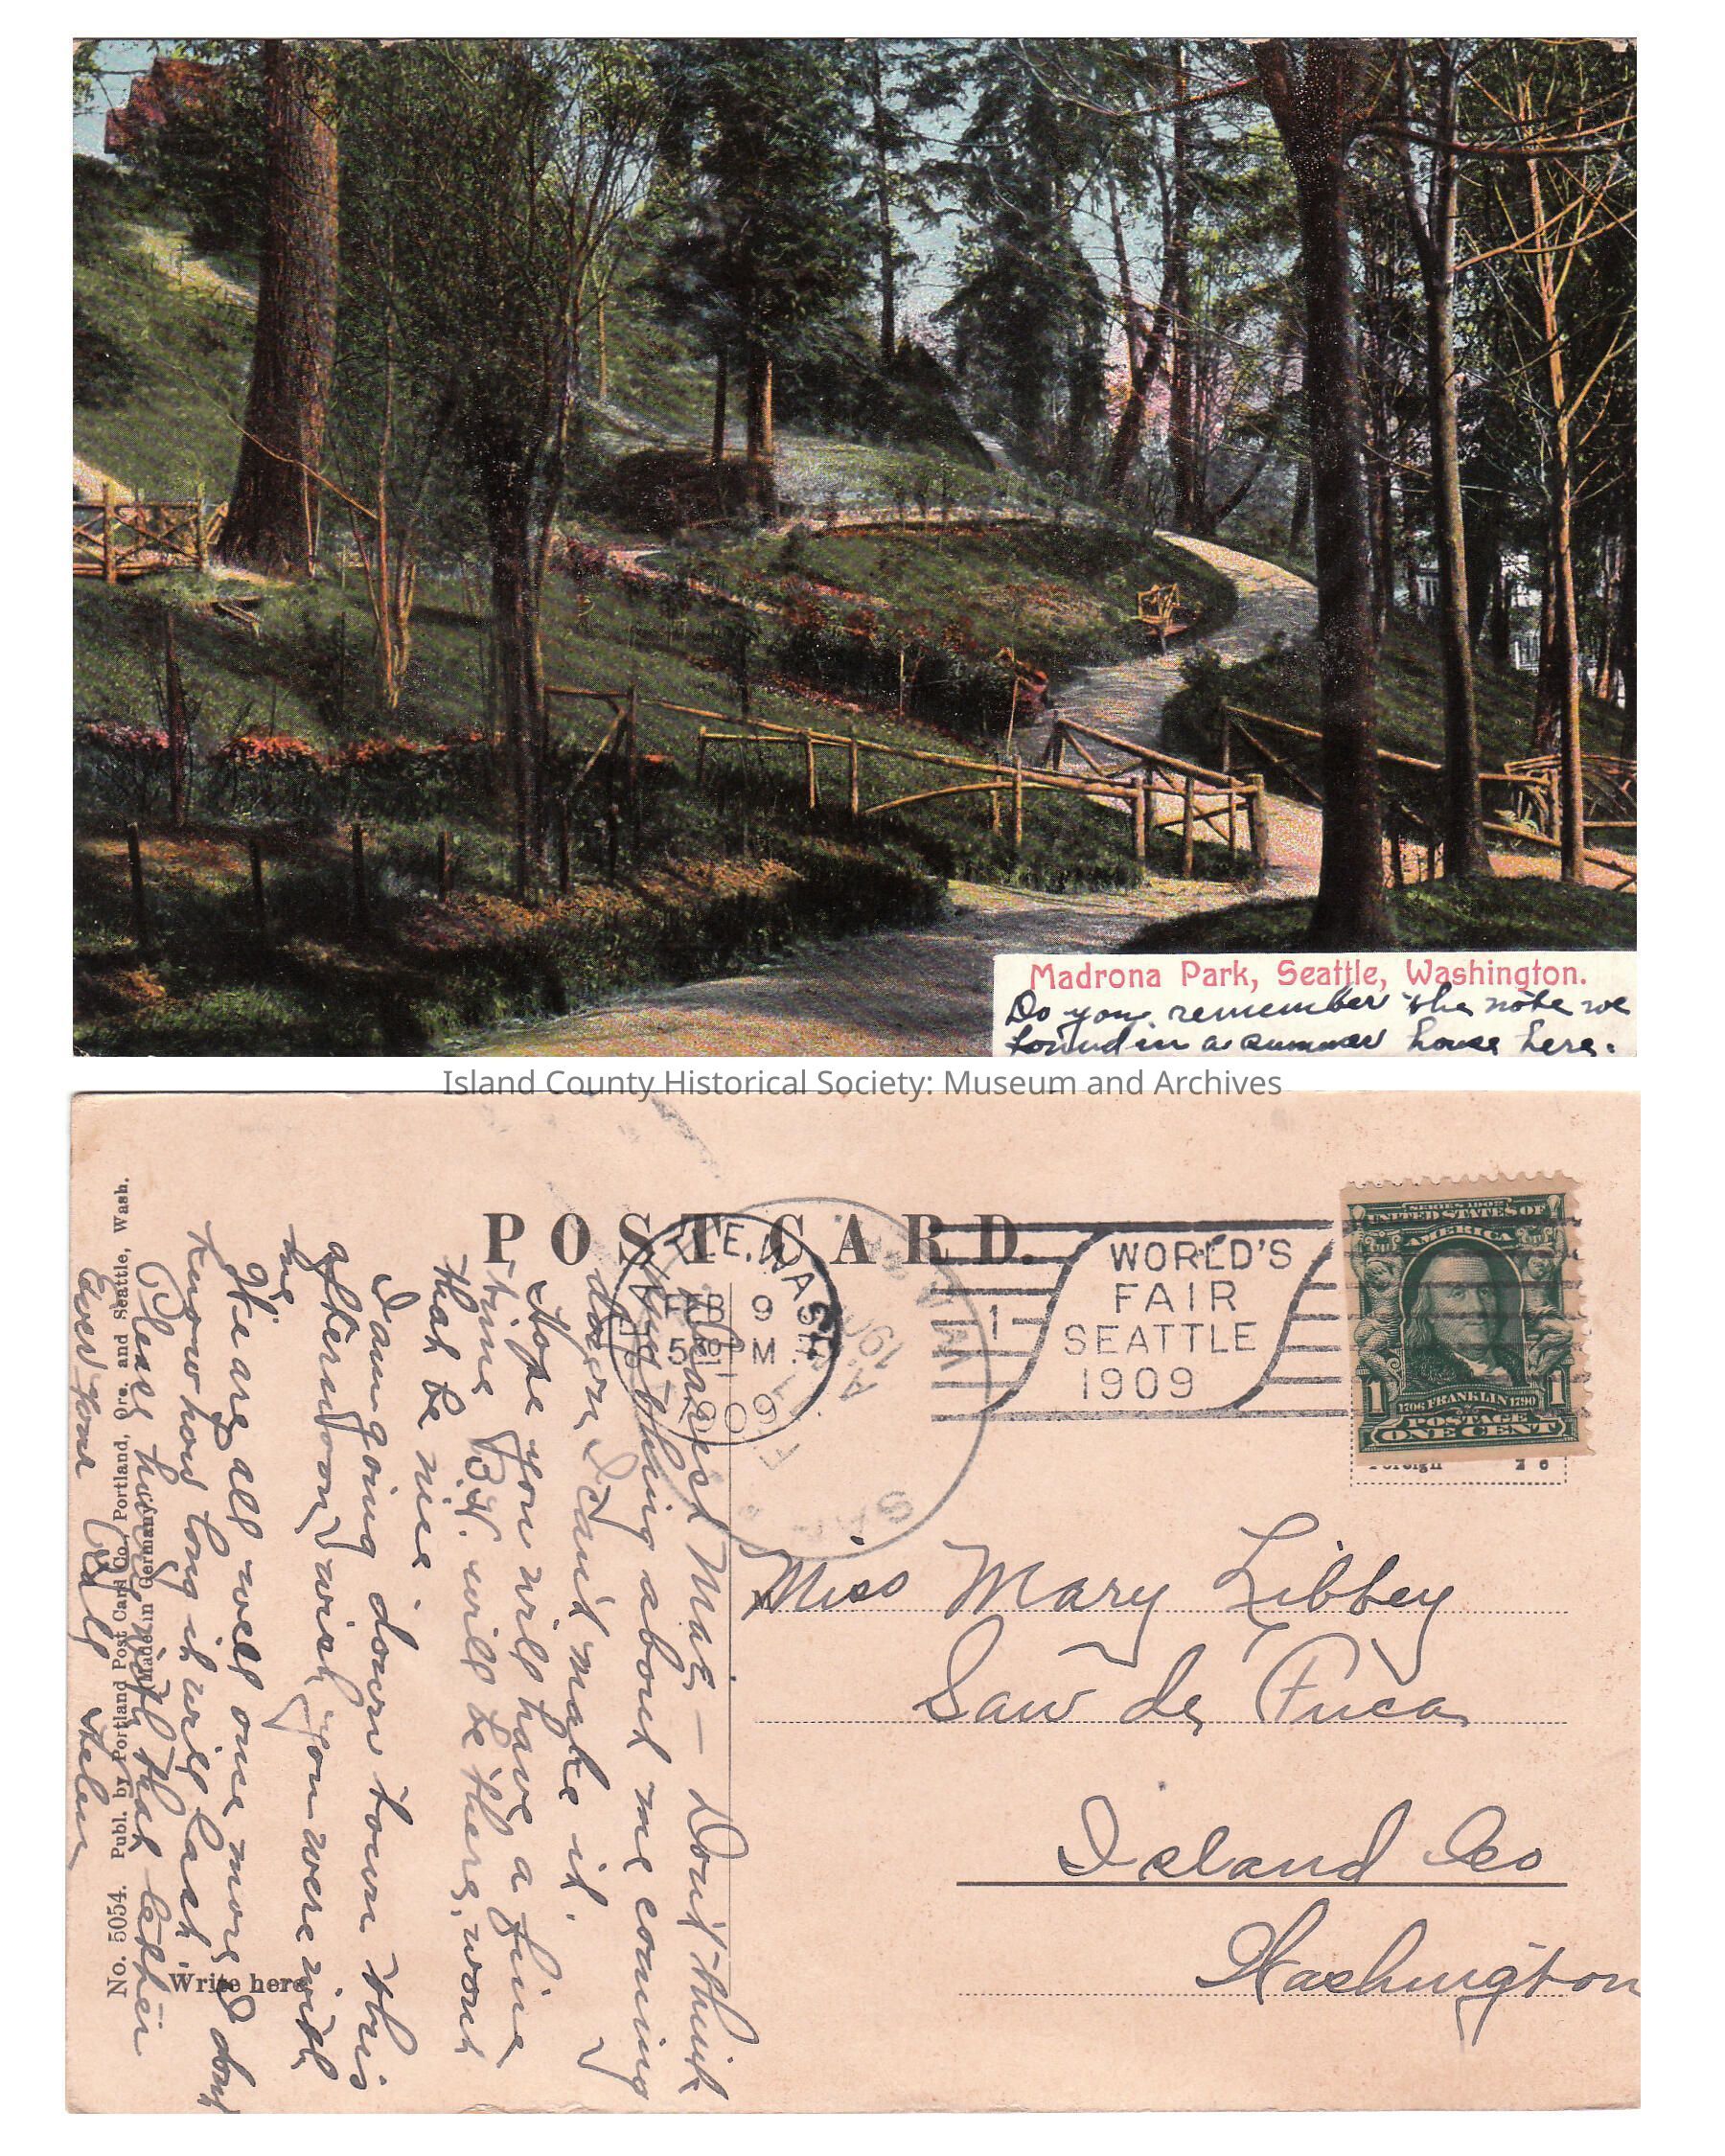 Madrona Park, Seattle, Washington.
Do you remember the note we
found in a summer house here.
Island County Historical Society: Museum and Archives
POST CARD.
SEATTLE, WASH.
FEB 9
5 PM
1909
1
WORLD'S
FAIR
SEATTLE
1909
SERIES 1902
UNITED STATES OF
AMERICA
1 1
1706 FRANKLIN 1790
POSTAGE
ONE CENT
Foreign 2 c
Miss Mary Libbey
San de Fuca
Island Co
Washington
Dearest Mae – Don't think
anything about me coming
down, I can't make it.
Hope you will have a fine
time. B.H. will be there, wont
that be nice
I am going down town this
afternoon, wish you were with
me
We are all well once more, dont
know how long it will last.
Please hurry with that letter
Ever your Helen
Write here
No. 5054. Publ. by Portland Post Card Co., Portland, Ore. and Seattle, Wash.
Made in Germany